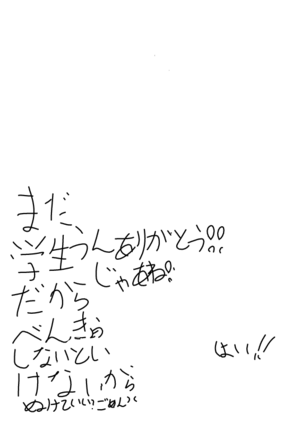 まだ、
学生
うんありがとう!!
じゃあね!
だから
べんきょ
しないとい
けないから
ぬけていい?ごめん
はい!!